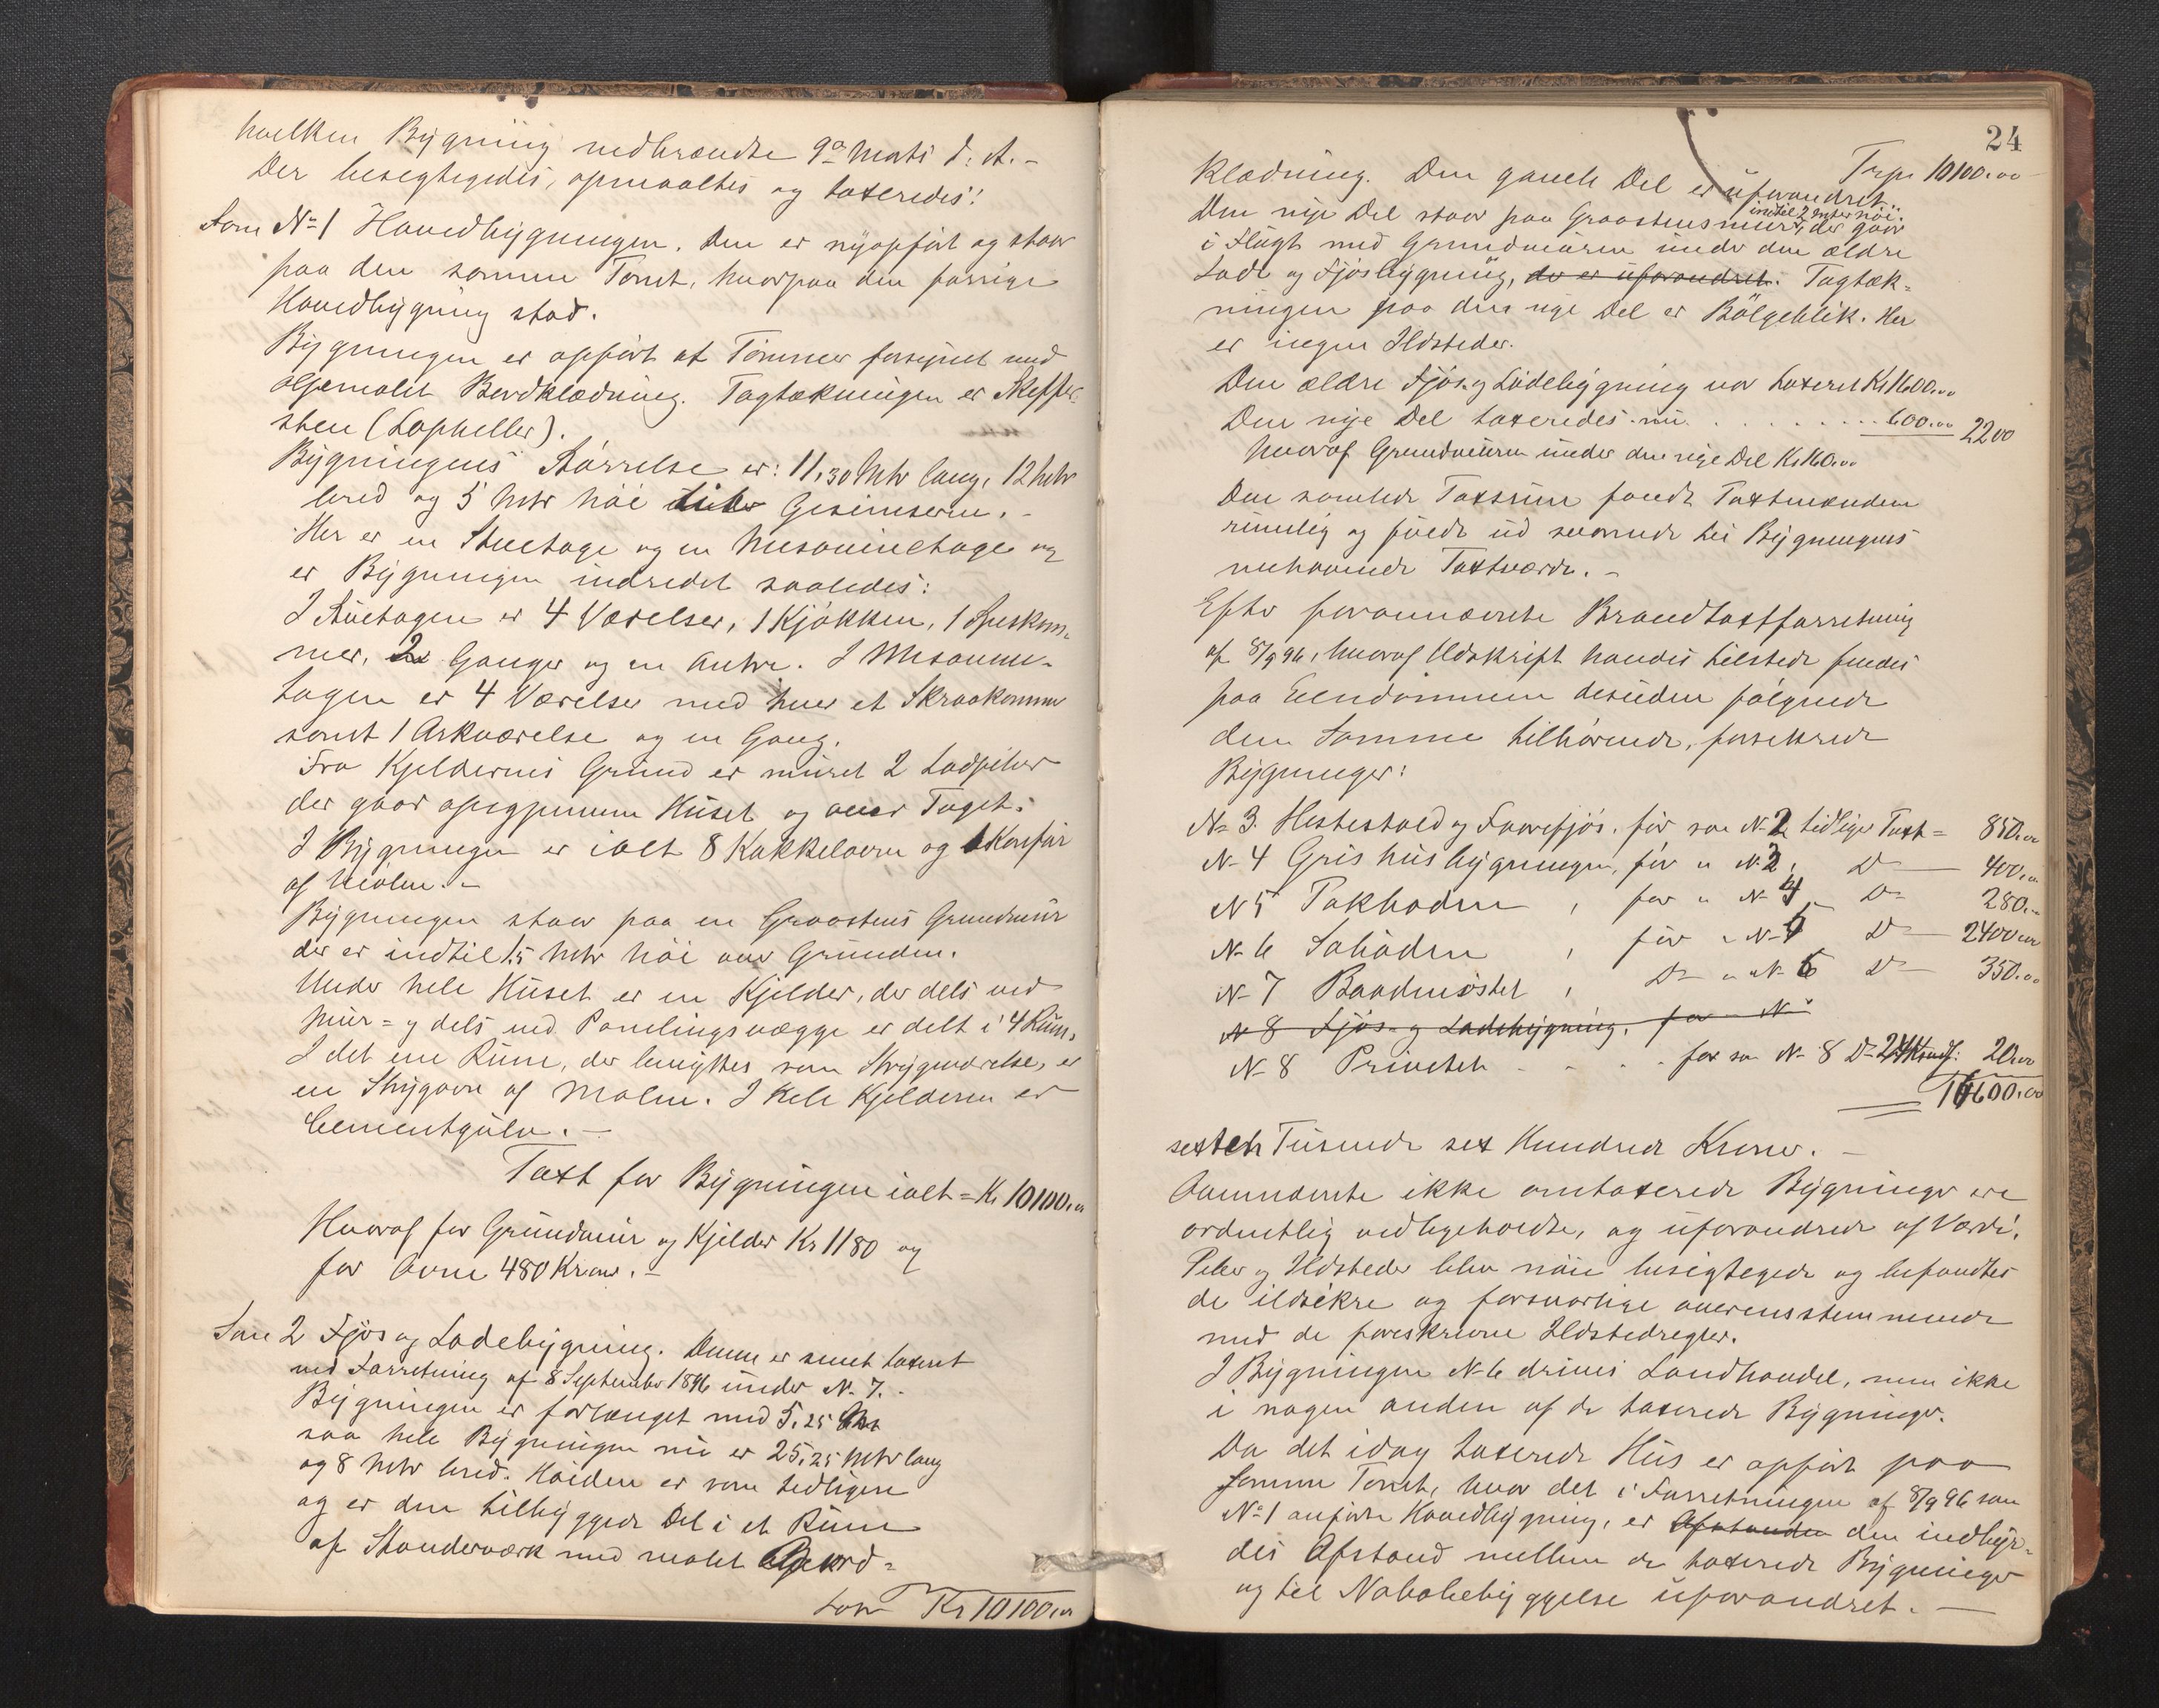 hvelken Bygning nedbrændte 9de Marts d. A. -
Der besigtigedes, opmaaltes og taxeredes:
Som No 1 Hovedbygningen. Den er nyopført og staar
paa den samme Tomt, hvorpaa den forrige
Hovedbygning stod.
Bygningen er opført af Tømmer forsynet med
oljemalet Bordklædning. Tagtækningen er Skiffer-
sten (Lapheller).
Bygningens Størrelse er: 11,30 Mtr lang, 12 Mtr
bred og 5 Mtr höi under Gesimserne. -
Her er en Stueetage og en Mesaninetage og
er Bygningen indredet saaledes:
I Stuetagen er 4 Værelser, 1 Kjøkken, 1 Spiskam-
mer, 2 Gange og en Entre. I Mesanin-
tagen er 4 Værelser med hver et Skraakammer
samt 1 Arkværelse og en Gang.
Fra Kjelderens Grund er muret 2 Ladpiber
der gaar opigjennem Huset og over Taget.
I Bygningen er ialt 8 Kakkelovne og 1 Komfür
af Malm. -
Bygningen staar paa en Graastens Grundmür
der er indtil 1,5 Mtr höi over Grunden.
Under hele Hüset er en Kjelder, der dels ved
Mür= og dels ved Panelingsvægge er delt i 4 Rüm.
I det ene Rüm, der benyttes som Strygeværelse, er
en Strygeovn af Malm. I hele Kjelderen er
Cementgulv. -
Taxt for Bygningen ialt = Kr 10100,00
Hvoraf for Grundmür og Kjelder Kr 1180 og
for Ovne 480 Kroner. -
Som 2 Fjös og Ladebygning. Denne er senest taxeret
ved Forretning af 8 September 1896 ünder No 7. -
Bygningen er forlænget med 5,25 Mtr
saa hele Bygningen nü er 25,25 Mtr lang
og 8 Mtr bred. Höiden er som tidligere
og er den tilbyggede Del i et Rüm
af Standerværk med malet Bord=
Lat Kr 10100,00
24
Trpr 10100,00
klædning. Den gamle Del er uforandret.
Den nye Del staar paa Graastensmür, indtil 2 Meter höi, der gaar
i Flugt med Grundmüren ünder den ældre
Lade og Fjösbygning, der er uforandret. Tagtæk=
ningen paa den nye Del er Bölgeblik. Her
er ingen Ildsteder.
Den ældre Fjös og Ladebygning var taxeret Kr 1600,00
Den nye Del taxeredes nü . . . . . . . 600,00 2200
hvoraf Grundmüren under den nye Del Kr 160,00
Den samlede Taxsüm fandt Taxtmændene
rimelig og fuldt ud svarende til Bygningens
nuhavende Taxtværdi. -
Efter forannævnte Brandtaxtforretning
af 8/9 96, hvoraf Udskrift havdes tilstede findes
paa Eiendommen desuden følgende
den Samme tilhørende, forsikrede
Bygninger:
No 3. Hestestald og Faarefjös, för som No 2 tidligere Taxt = 850,00
No 4 Grishüsbygningen, för " No 3, Do — 400,00
No 5 Pakboden , för " No 4, Do 280,00
No 6 Söboden , för " No 5 Do — 2400,00
No 7 Baadnöstet , Do " No 6 Do — 350,00
No 8 Fjös- og Ladebygning, för No
No 8 Privetet . . . för som No 8 Do 20,00
16600,00
sexten Tusende sex Hundrede Kroner. -
Ovennævnte ikke omtaxerede Bygninger ere
ordentlig vedligeholdte, og uforandrede af Værdi.
Piber og Ildsteder blev nöie besigtigede og befandtes
de ildsikre og forsvarlige overensstemmende
med de foreskrevne Ildstedregler.
I Bygningen No 6 drives Landhandel, men ikke
i nogen anden af de taxerede Bygninger.
Da det idag taxerede Hüs er opfört paa
samme Tomt, hvor det i Forretningen af 8/9 96 som
No 1 anførte Hovedbygning, er Afstanden den indbyr-
des Afstand mellem de taxerede Bygninger
og til Nabobebyggelse uforandret. -